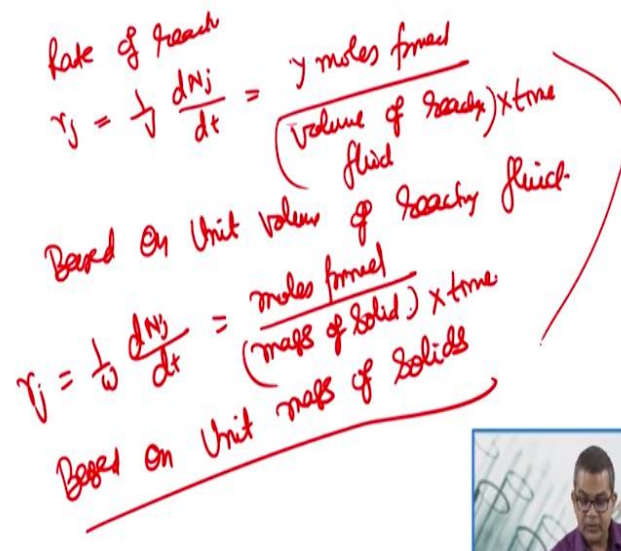 Rate of reach
rj = 1/V dNj/dt = j moles formed / (volume of reactg fluid) x time
Based on Unit volume of reactig fluid.
rj = 1/w dNj/dt = moles formed / (mass of solid) x time
Based on Unit mass of solids